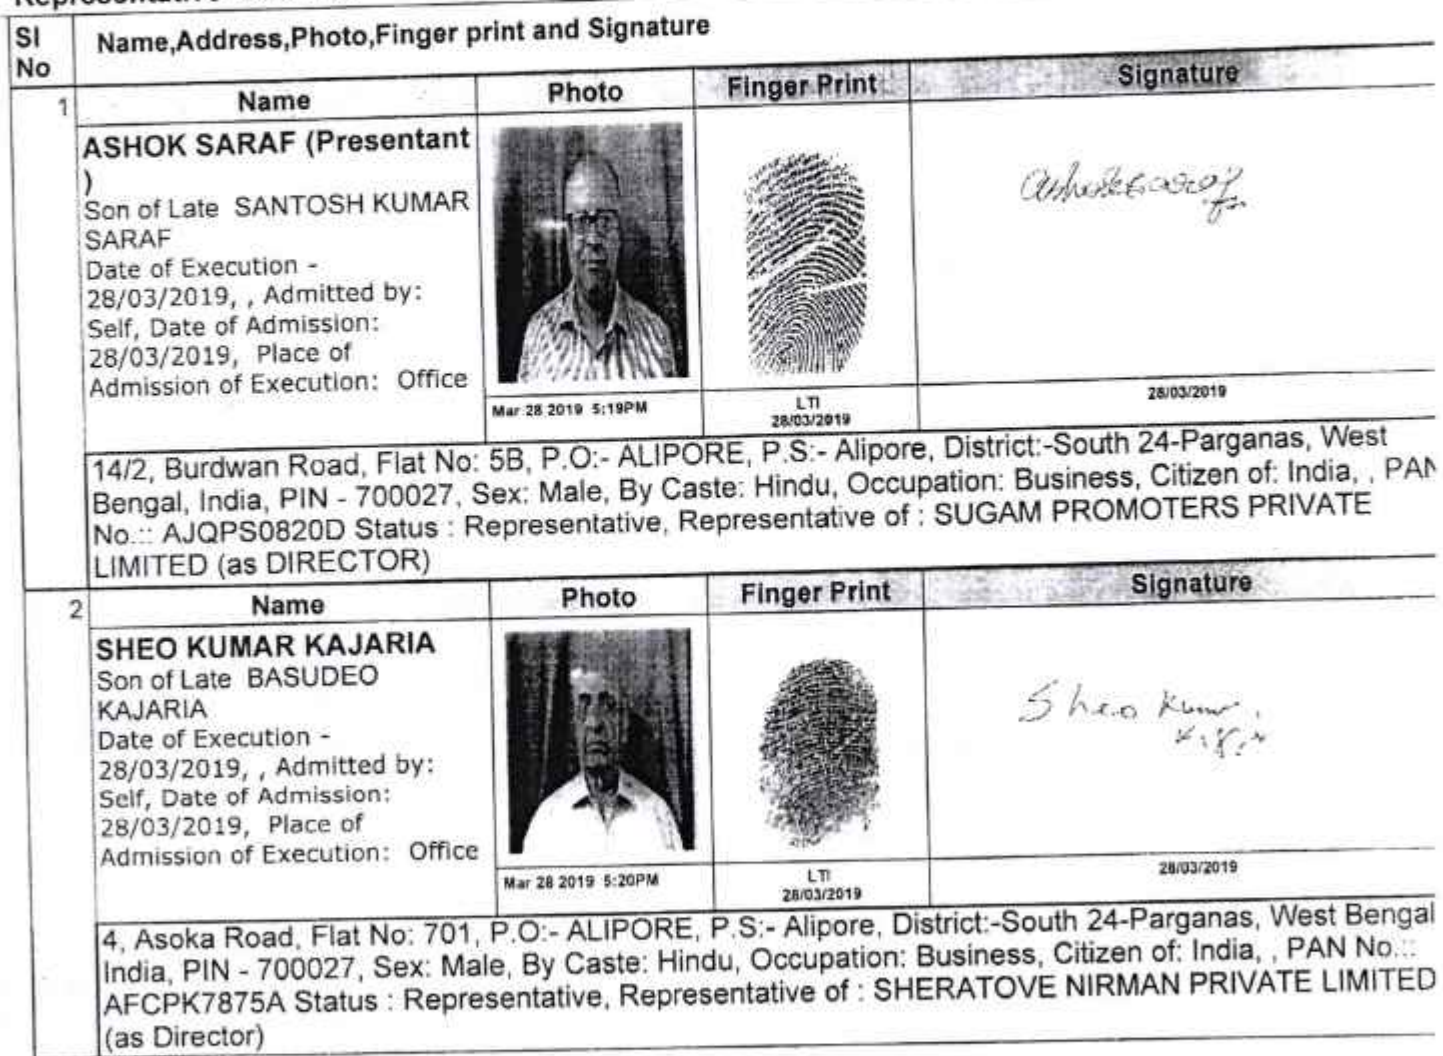 Representative
SI No
Name,Address,Photo,Finger print and Signature
1
Name
Photo
Finger Print
Signature
ASHOK SARAF (Presentant
)
Son of Late SANTOSH KUMAR
SARAF
Date of Execution -
28/03/2019, , Admitted by:
Self, Date of Admission:
28/03/2019, Place of
Admission of Execution: Office
Ashok Saraf
Mar 28 2019 5:19PM
LTI
28/03/2019
28/03/2019
14/2, Burdwan Road, Flat No: 5B, P.O:- ALIPORE, P.S:- Alipore, District:-South 24-Parganas, West
Bengal, India, PIN - 700027, Sex: Male, By Caste: Hindu, Occupation: Business, Citizen of: India, , PAN
No.:: AJQPS0820D Status : Representative, Representative of : SUGAM PROMOTERS PRIVATE
LIMITED (as DIRECTOR)
2
Name
Photo
Finger Print
Signature
SHEO KUMAR KAJARIA
Son of Late BASUDEO
KAJARIA
Date of Execution -
28/03/2019, , Admitted by:
Self, Date of Admission:
28/03/2019, Place of
Admission of Execution: Office
Sheo Kumar
Mar 28 2019 5:20PM
LTI
28/03/2019
28/03/2019
4, Asoka Road, Flat No: 701, P.O:- ALIPORE, P.S:- Alipore, District:-South 24-Parganas, West Bengal
India, PIN - 700027, Sex: Male, By Caste: Hindu, Occupation: Business, Citizen of: India, , PAN No.::
AFCPK7875A Status : Representative, Representative of : SHERATOVE NIRMAN PRIVATE LIMITED
(as Director)